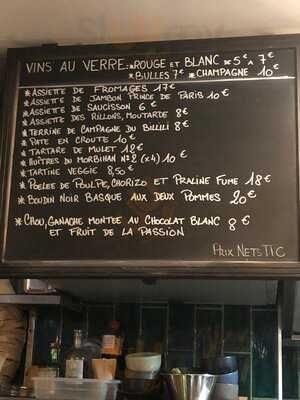 VINS AU VERRE: *ROUGE ET BLANC *5€ À 7€
*BULLES 7€ *CHAMPAGNE 10€
*ASSIETTE DE FROMAGES 17€
*ASSIETTE DE JAMBON PRINCE DE PARIS 10€
*ASSIETTE DE SAUCISSON 6€
*ASSIETTE DES RILLONS, MOUTARDE 8€
*TERRINE DE CAMPAGNE DU BILLILI 8€
*PATE EN CROUTE 10€
*TARTARE DE MULET 12€
*HUÎTRES DU MORBIHAN N°2 (x4) 10€
*TARTINE VEGGIE 8,50€
*POELEE DE POULPE, CHORIZO ET PRALINE FUME 18€
*BOUDIN NOIR BASQUE AUX DEUX POMMES 20€
*CHOU, GANACHE MONTEE AU CHOCOLAT BLANC 8€
ET FRUIT DE LA PASSION
PRIX NETS TTC